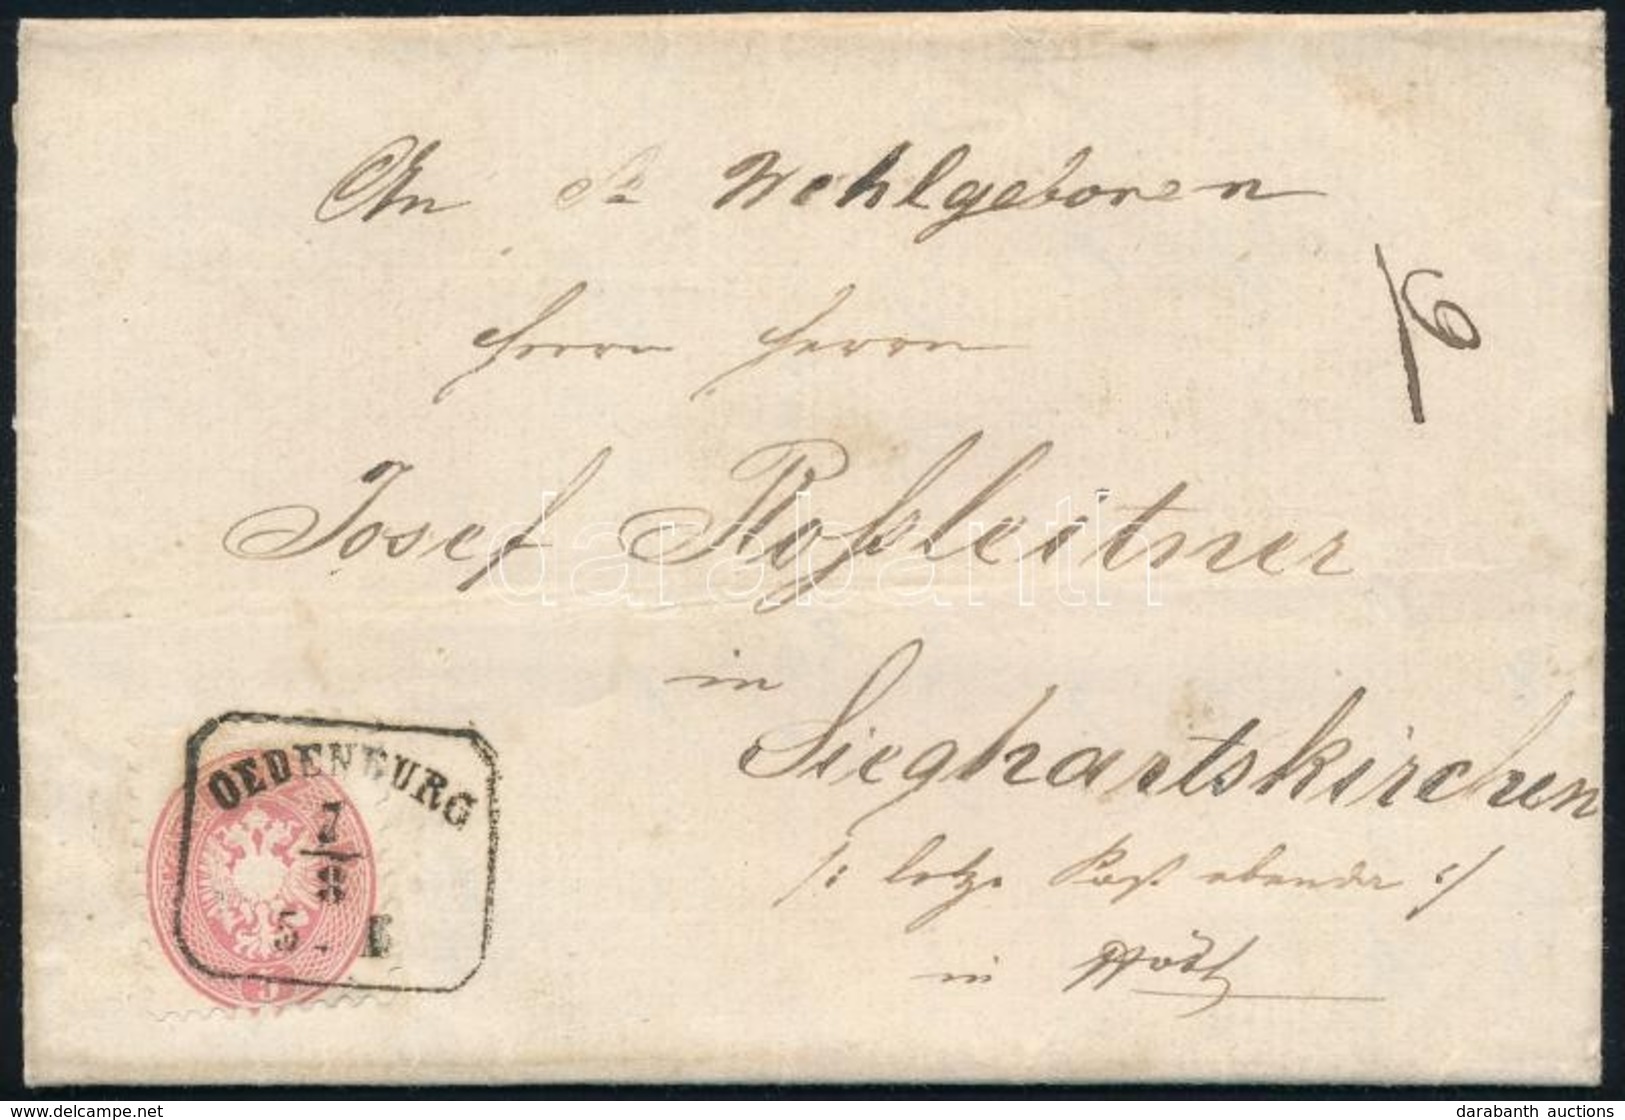 An Sr Wohlgeboren
Herrn Herrn
Josef Roßleitner
in
Sieghartskirchen
/: letzte Post ebenda :/
in
OEDENBURG
7/8
5
5
6
darabanth
www.delcampe.net
darabanth auctions